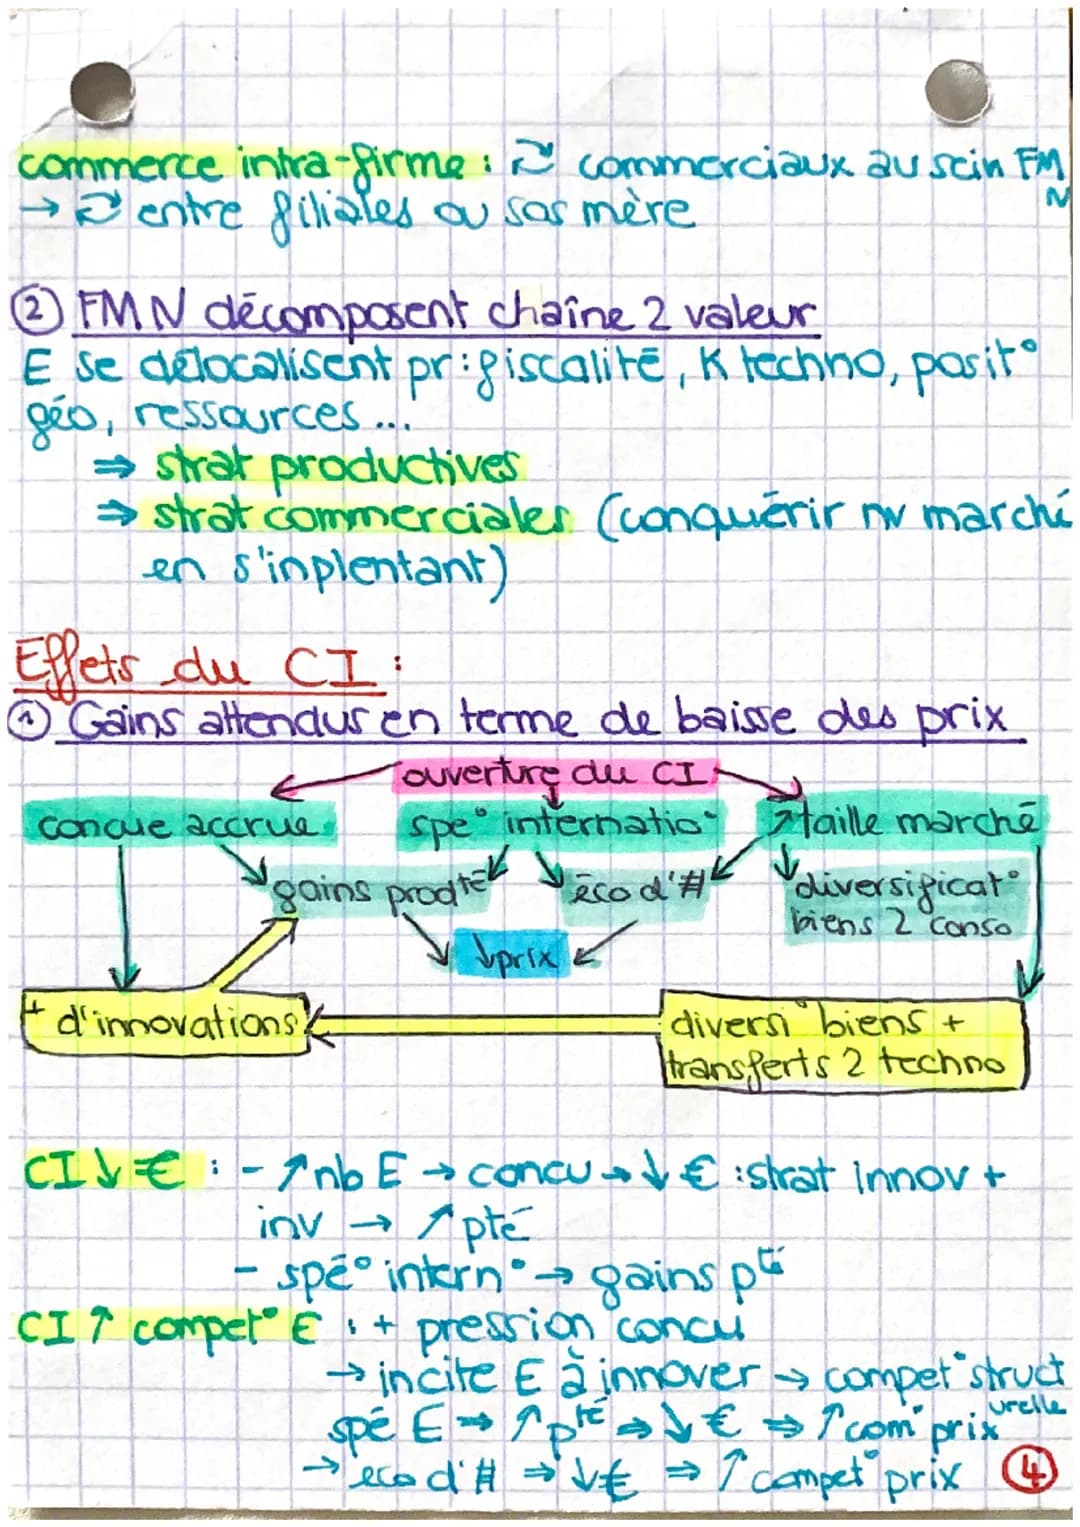 commerce intra-firme : ⇄ commerciaux au sein FM
N
→ ⇄ entre filiales ou sos mère
② FMN décomposent chaîne 2 valeur
E se délocalisent pr : fiscalité, K techno, posit°
géo, ressources...
⇒ strat productives
⇒ strat commerciales (conquérir nv marché
en s'inplentant)
Effets du CI :
① Gains attendus en terme de baisse des prix
ouverture du CI
concue accrue
spé° internatio°
↗ taille marché
gains prodté
éco d'#
diversificat°
biens 2 conso
↓ prix
+ d'innovations
diversi° biens +
transferts 2 techno
CI ↓ € : - ↗ nb E → concu → ↓ € : strat innov +
inv → ↗ pté
- spé° intern° → gains pté
CI ↑ compet° E : + pression concu
→ incite E à innover → compet° struct
urelle
spé E ⇒ ↗ pté ⇒ ↓ € ⇒ ↑ com° prix
→ eco d'# ⇒ ↓ € ⇒ ↑ compet° prix
④